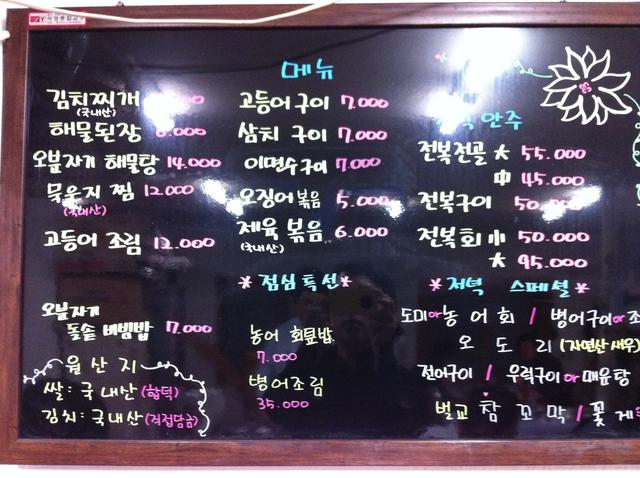 메뉴
김치찌개
(국내산)
해물된장 6.000
오분자기 해물탕 14.000
묵은지 찜 12.000
(국내산)
고등어 조림 12.000
고등어 구이 7.000
삼치 구이 7.000
이면수구이 7.000
오징어볶음 5.000
제육 볶음 6.000
(국내산)
안주
전복전골 大 55.000
中 45.000
전복구이
전복회 小 50.000
大 95.000
*점심특선*
오분자기
돌솥 비빔밥 7.000
농어 회덮밥
7.000
병어조림
35.000
원산지
쌀: 국내산 (합덕)
김치: 국내산 (직접담금)
*저녁 스페셜*
도미or농어회 / 병어구이or조
오도리 (자연산새우)
전어구이 / 우럭구이or매운탕
벌교 참꼬막 / 꽃게